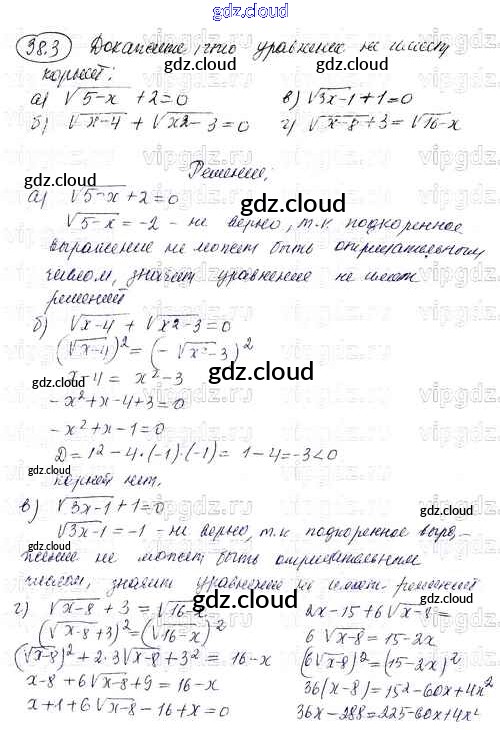 gdz.cloud
38.3 Докажите, что уравнения не имеют
корней:
а) √5-x + 2 = 0 в) √3x-1 + 1 = 0
б) √x-4 + √x2-3 = 0 г) √x-8 + 3 = √16-x
Решение:
а) √5-x + 2 = 0
√5-x = -2 - не верно, т.к. подкоренное
выражение не может быть отрицательным
числом, значит уравнение не имеет
решений
б) √x-4 + √x2-3 = 0
(√x-4)² = (-√x²-3)²
x-4 = x²-3
-x²+x-4+3=0
-x²+x-1=0
D=1²-4·(-1)·(-1) = 1-4=-3<0
корней нет.
в) √3x-1 + 1 = 0
√3x-1 = -1 - не верно, т.к подкоренное выра-
жение не может быть отрицательным
числом, значит уравнение не имеет решений
г) √x-8 + 3 = √16-x
(√x-8 + 3)² = (√16-x)²
(√x-8)² + 2·3√x-8 + 3² = 16-x
x-8 + 6√x-8 + 9 = 16-x
x+1+6√x-8 - 16+x = 0
2x-15+6√x-8 =
6√x-8 = 15-2x
(6√x-8)² = (15-2x)²
36(x-8) = 15²-60x+4x²
36x-288=225-60x+4x²